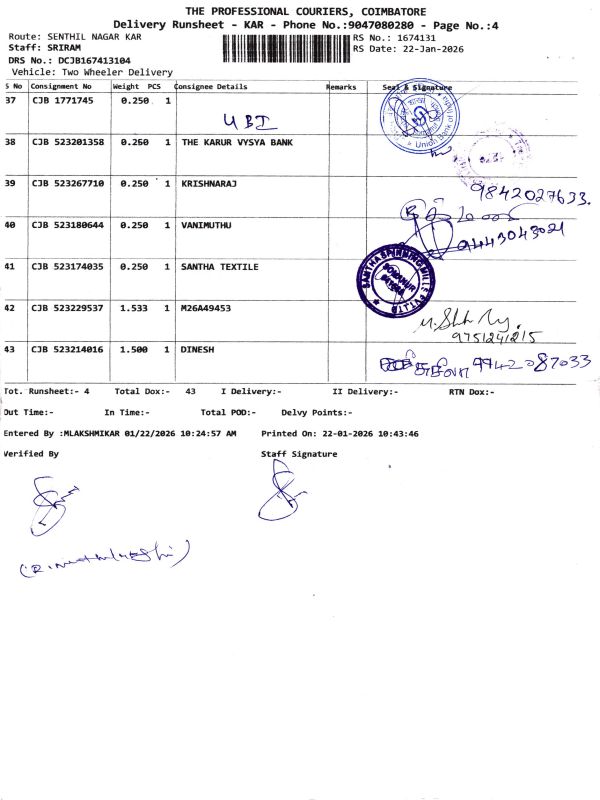 THE PROFESSIONAL COURIERS, COIMBATORE
Delivery Runsheet - KAR - Phone No.:9047080280 - Page No.:4
Route: SENTHIL NAGAR KAR
RS No.: 1674131
Staff: SRIRAM
RS Date: 22-Jan-2026
DRS No.: DCJB167413104
Vehicle: Two Wheeler Delivery
S No Consignment No Weight PCS Consignee Details Remarks Seal & Signature
37 CJB 1771745 0.250 1 UBI
Union Bank of India
38 CJB 523201358 0.260 1 THE KARUR VYSYA BANK
39 CJB 523267710 0.250 1 KRISHNARAJ 9842027633.
40 CJB 523180644 0.250 1 VANIMUTHU 9443043021
41 CJB 523174035 0.250 1 SANTHA TEXTILE
SANTHA SPINNING MILLS PVT LTD
42 CJB 523229537 1.533 1 M26A49453
9751241215
43 CJB 523214016 1.500 1 DINESH 9942087033
Tot. Runsheet:- 4 Total Dox:- 43 I Delivery:- II Delivery:- RTN Dox:-
Out Time:- In Time:- Total POD:- Delvy Points:-
Entered By :MLAKSHMIKAR 01/22/2026 10:24:57 AM Printed On: 22-01-2026 10:43:46
Verified By Staff Signature